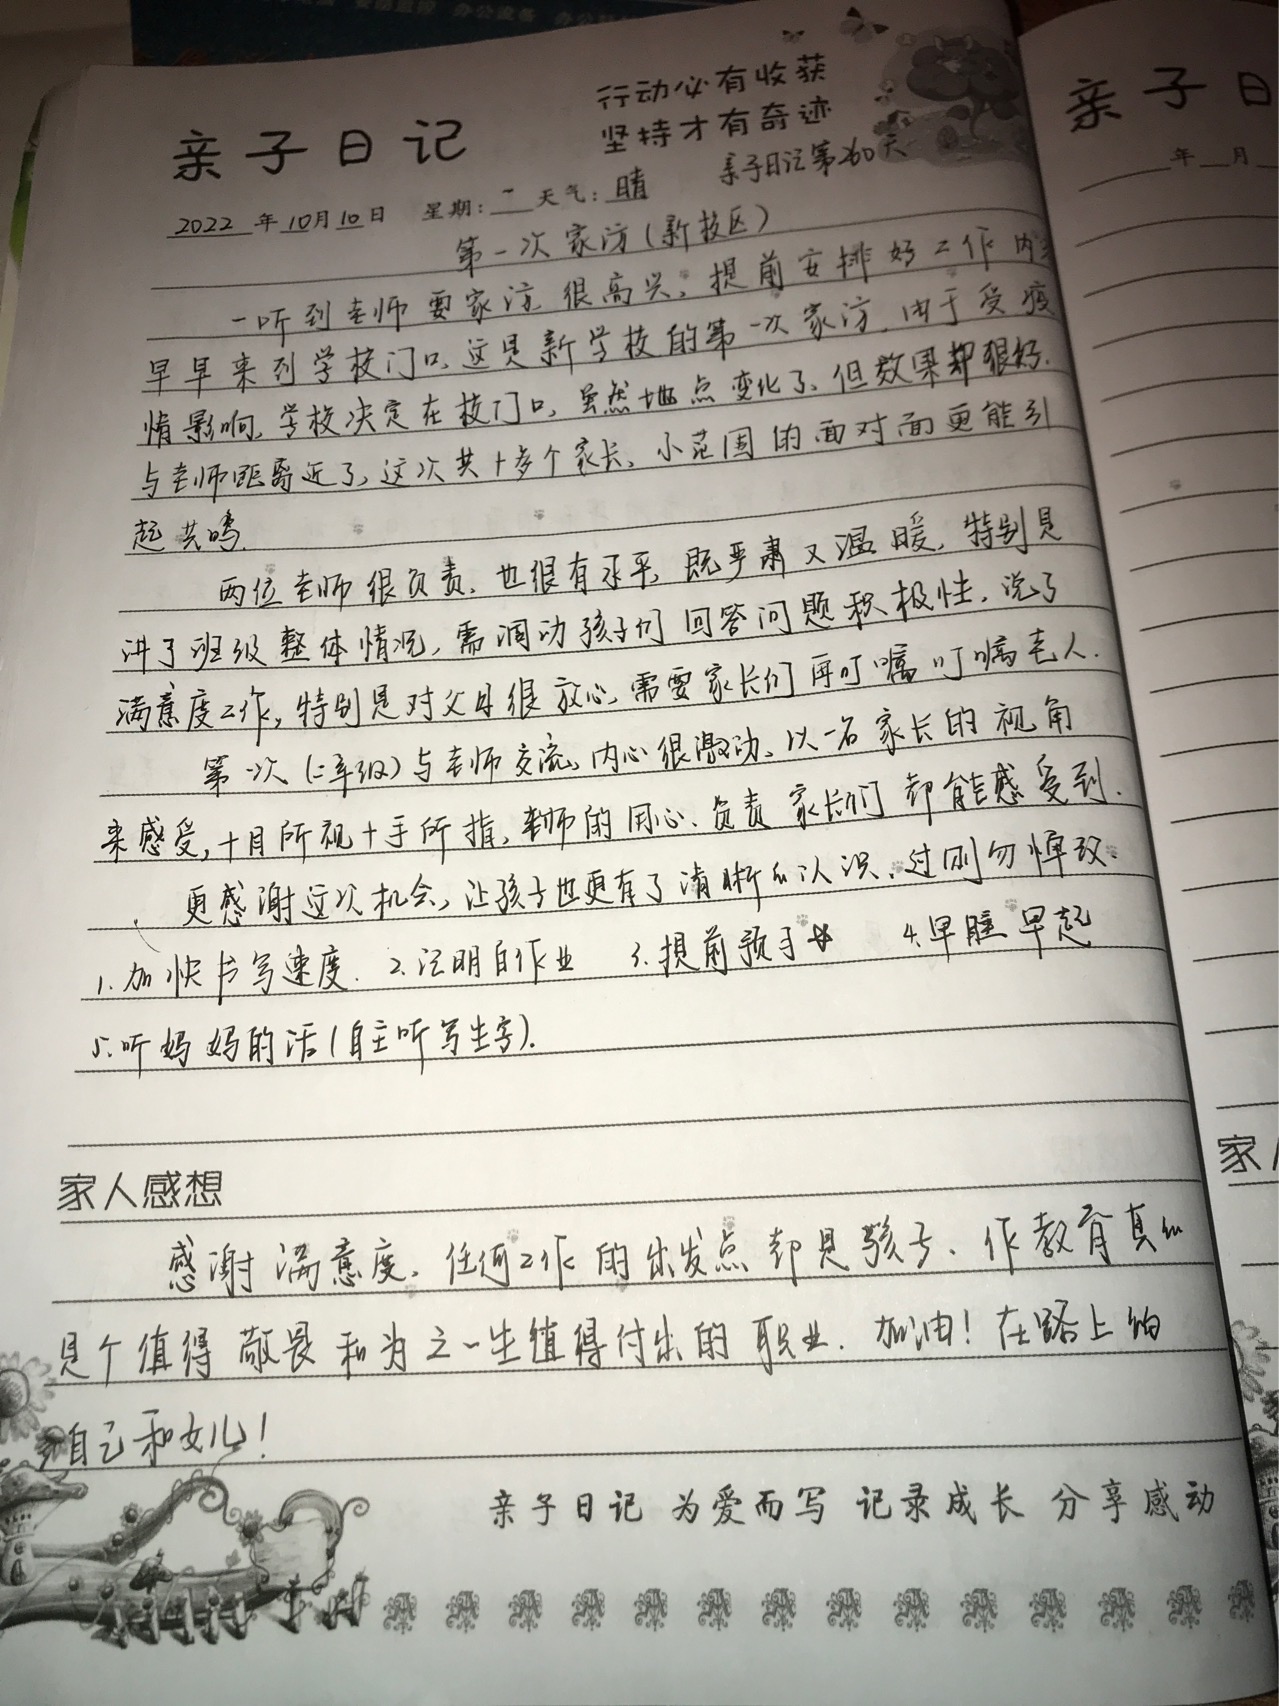 行动必有收获
坚持才有奇迹
亲子日记
亲子日记第260天
2022年10月10日 星期：一 天气：晴
第一次家访（新校区）
一听到老师要家访，很高兴，提前安排好工作内
早早来到学校门口，这是新学校的第一次家访，由于受疫
情影响，学校决定在校门口，虽然地点变化了，但效果却很好，
与老师距离近了，这次共十多个家长，小范围的面对面更能引
起共鸣.
两位老师很负责，也很有水平，既严肃又温暖，特别是
讲了班级整体情况，需调动孩子们回答问题积极性，说了
满意度工作，特别是对父母很放心，需要家长们再叮嘱叮嘱老人.
第一次（二年级）与老师交流，内心很激动，以一名家长的视角
来感受，十目所视十手所指，老师的用心、负责家长们都能感受到.
更感谢这次机会，让孩子也更有了清晰的认识，过则勿惮改.
1.加快书写速度. 2.注明自作业 3.提前预习 4.早睡早起
5.听妈妈的话（自主听写生字）.
家人感想
感谢满意度，任何工作的出发点都是孩子，作教育真的
是个值得敬畏和为之一生值得付出的职业. 加油！在路上的
自己和女儿！
亲子日记 为爱而写 记录成长 分享感动
亲子日
年 月
家人